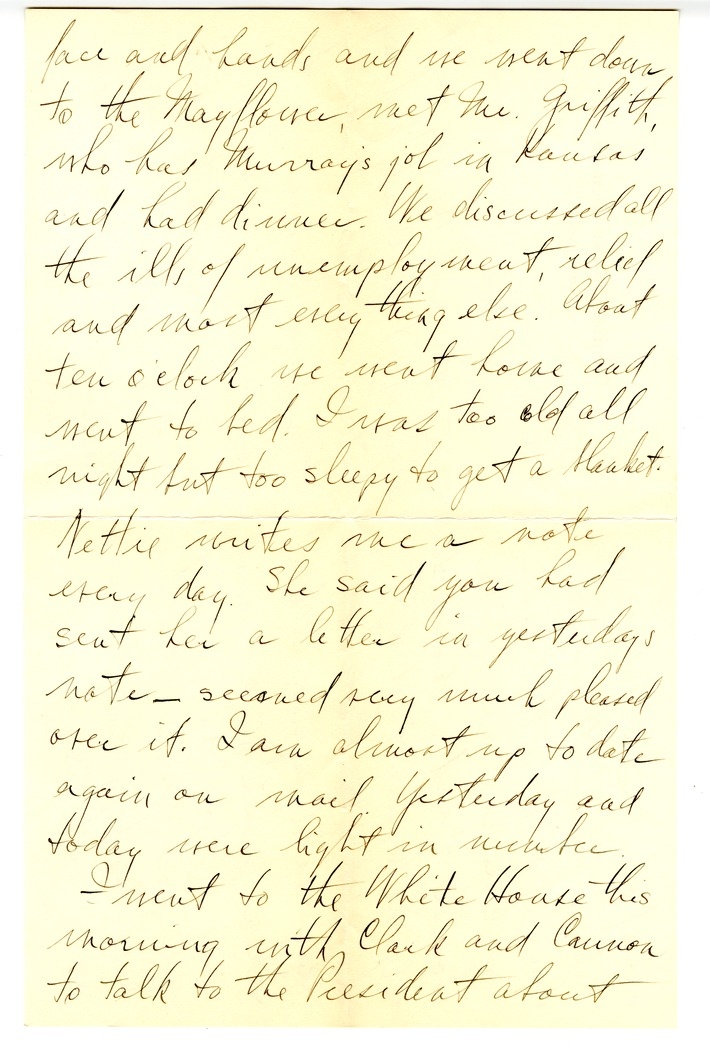 face and hands and we went down
to the Mayflower, met Mr. Griffith,
who has Murray's job in Kansas
and had dinner. We discussed all
the ills of unemployment, relief
and most every thing else. About
ten o'clock we went home and
went to bed. I was too cold all
night but too sleepy to get a blanket.
Nettie writes me a note
every day. She said you had
sent her a letter in yesterdays
note — seemed very much pleased
over it. I am almost up to date
again on mail. Yesterday and
today were light in number.
I went to the White House this
morning with Clark and Cannon
to talk to the President about